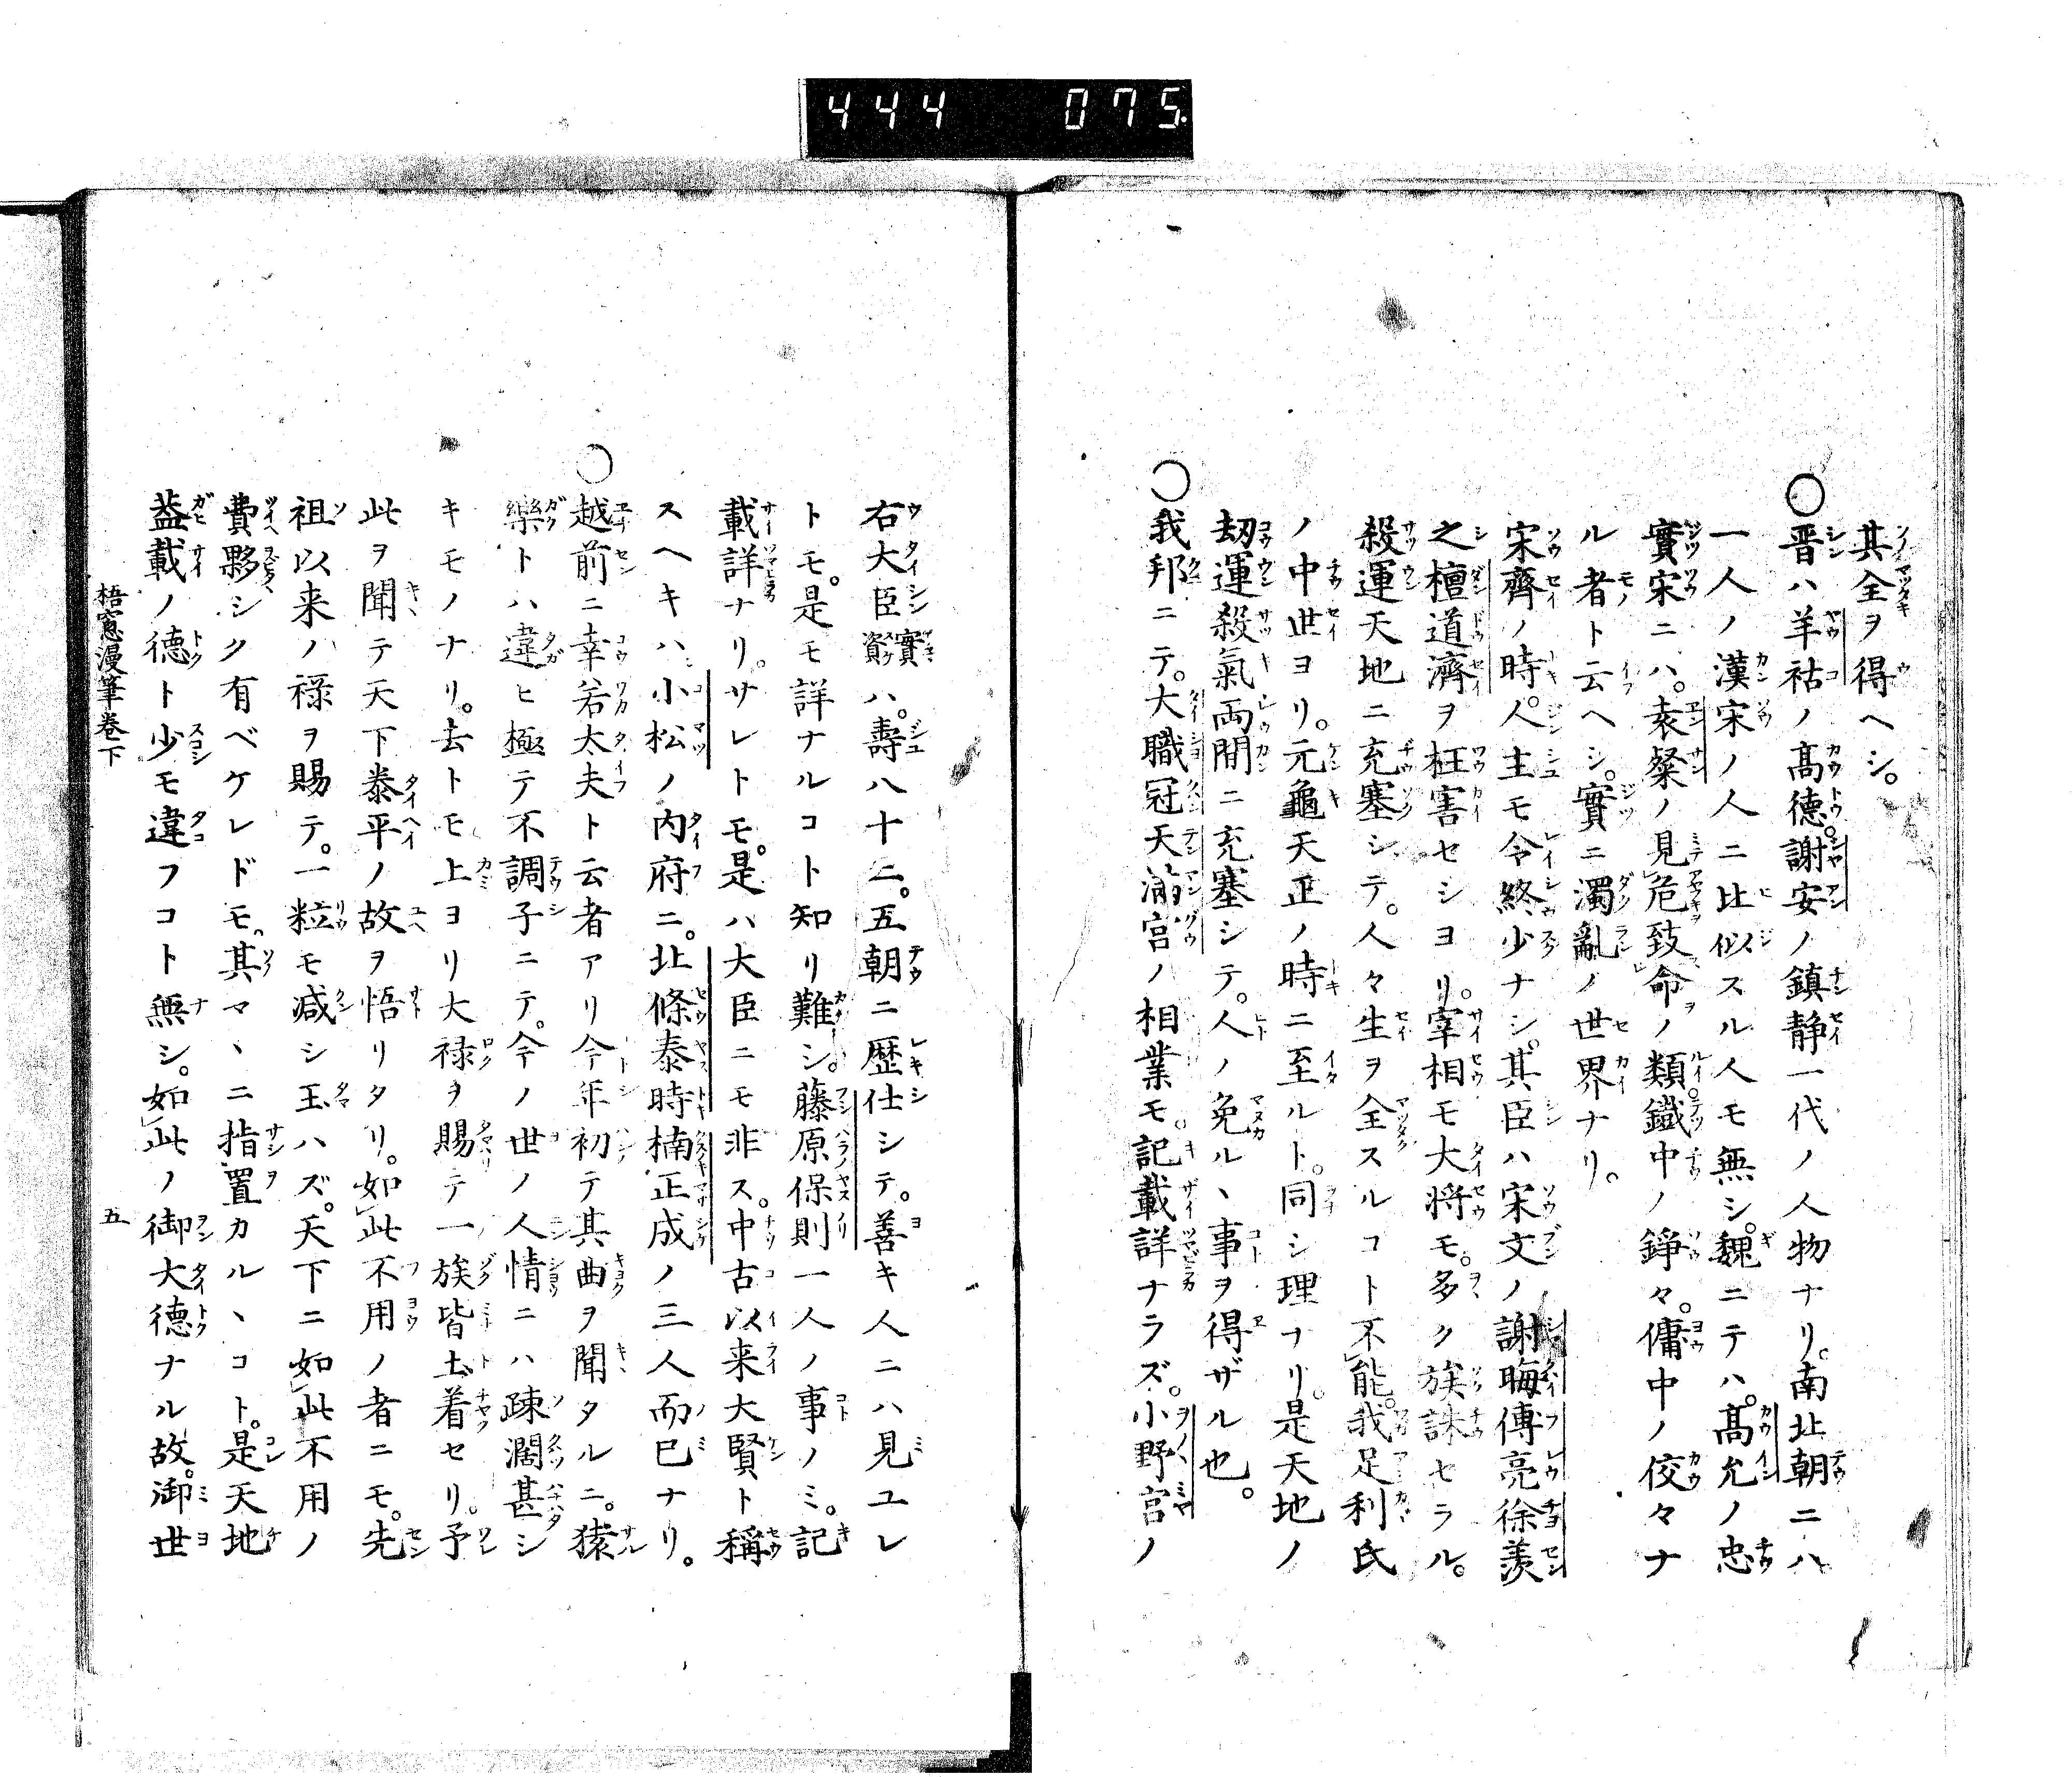 444 075
其全ヲ得ヘシ。
○晋ハ羊祜ノ高德。謝安ノ鎮静一代ノ人物ナリ。南北朝ニハ
一人ノ漢宋ノ人ニ比似スル人モ無シ。魏ニテハ。高允ノ忠
實宋ニハ。袁粲ノ見危致命ノ類。鐵中ノ錚々。傭中ノ佼々ナ
ル者ト云ヘシ。實ニ濁亂ノ世界ナリ。
宋齊ノ時。人主モ令終少ナシ。其臣ハ宋文ノ謝晦傅亮徐羨
之檀道濟ヲ枉害セシヨリ。宰相モ大将モ。多ク族誅セラル。
殺運天地ニ充塞シテ。人々生ヲ全スルコト不能。我足利氏
ノ中世ヨリ。元龜天正ノ時ニ至ルト。同シ理ナリ。是天地ノ
劫運殺氣両間ニ充塞シテ。人ノ免ルヽ事ヲ得ザル也。
○我邦ニテ。大職冠天滿宮ノ相業モ。記載詳ナラズ。小野宮ノ
右大臣實資ハ。壽八十二。五朝ニ歴仕シテ。善キ人ニハ見ユレ
トモ。是モ詳ナルコト知リ難シ。藤原保則一人ノ事ノミ。記
載詳ナリ。サレトモ。是ハ大臣ニモ非ス。中古以来大賢ト稱
スヘキハ。小松ノ内府ニ。北條泰時楠正成ノ三人而已ナリ。
○越前ニ幸若太夫ト云者アリ今年初テ其曲ヲ聞タルニ。猿
樂トハ違ヒ極テ不調子ニテ。今ノ世ノ人情ニハ疎濶甚シ
キモノナリ。去トモ上ヨリ大禄ヲ賜テ一族皆土着セリ。予
此ヲ聞テ天下泰平ノ故ヲ悟リタリ。如此不用ノ者ニモ。先
祖以来ノ禄ヲ賜テ。一粒モ减シ玉ハズ。天下ニ如此不用ノ
費夥シク有ベケレドモ。其マヽニ指置カルヽコト。是天地
葢載ノ德ト少モ違フコト無シ。如此ノ御大德ナル故。御世
梧窓漫筆卷下 五